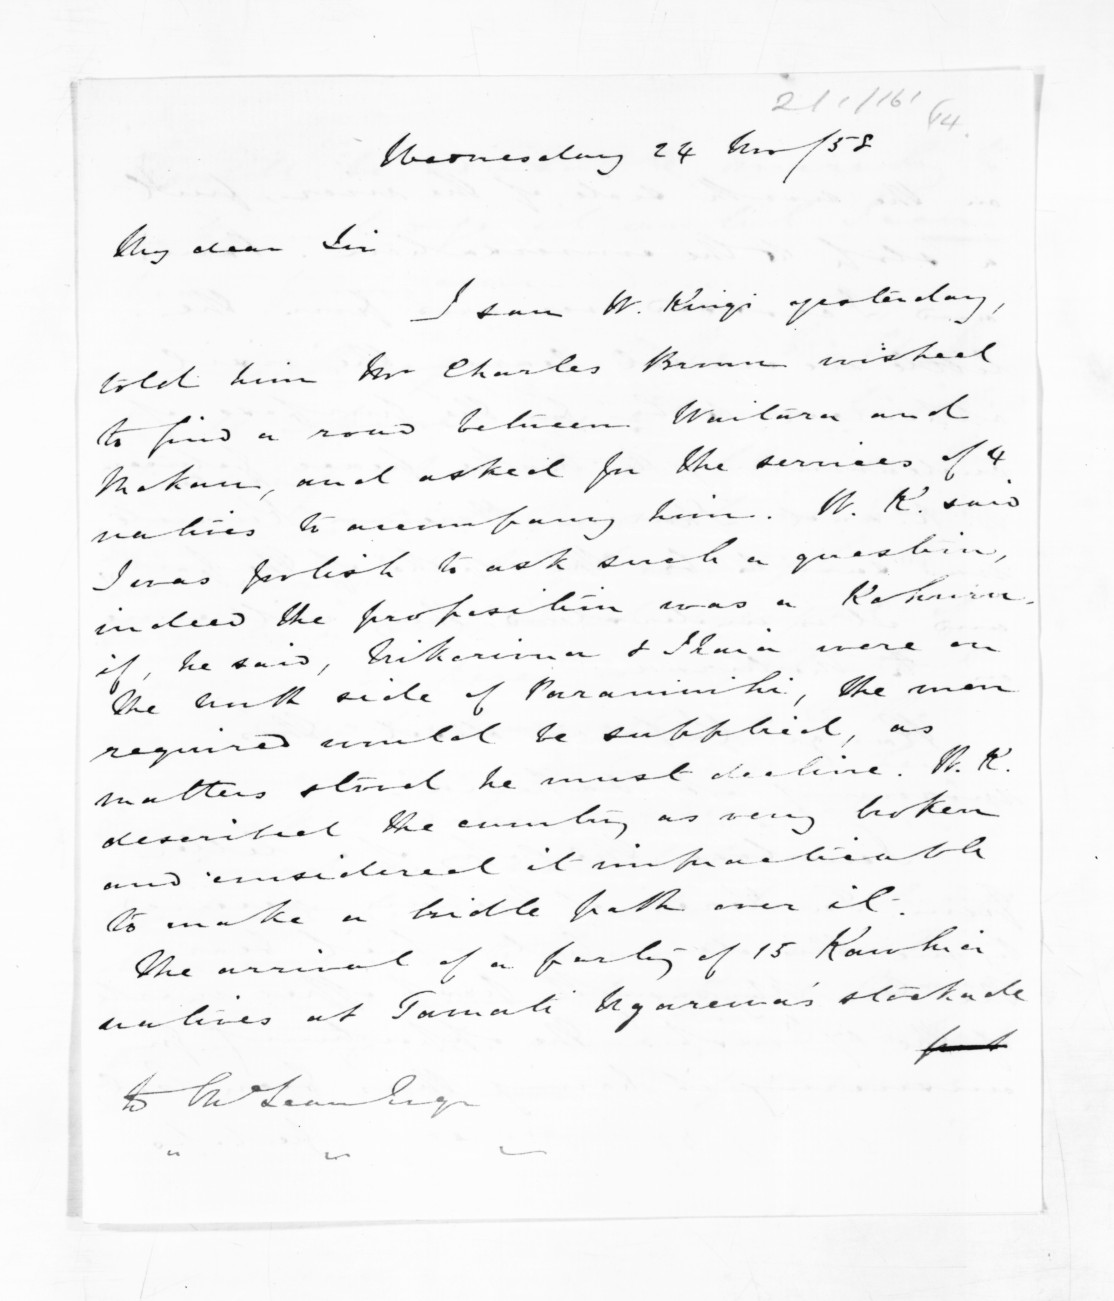 21/1/161
64.
Wednesday 24 Nov/58
My dear Sir
I saw W. Kingi yesterday,
told him Mr Charles Brown wished
to find a road between Waitara and
Mokau, and asked for the services of 4
natives to accompany him. W. K. said
I was foolish to ask such a question,
indeed the proposition was a Kohuru.
if, he said, Nikorima & Ihaia were on
the north side of Paraninihi, the men
required would be supplied, as
matters stood he must decline. W. K.
described the country as very broken
and considered it impracticable
to make a bridle path over it.
The arrival of a party of 15 Kawhia
natives at Tamati Ngarewa's stockade
to McLean Esqr
" " "